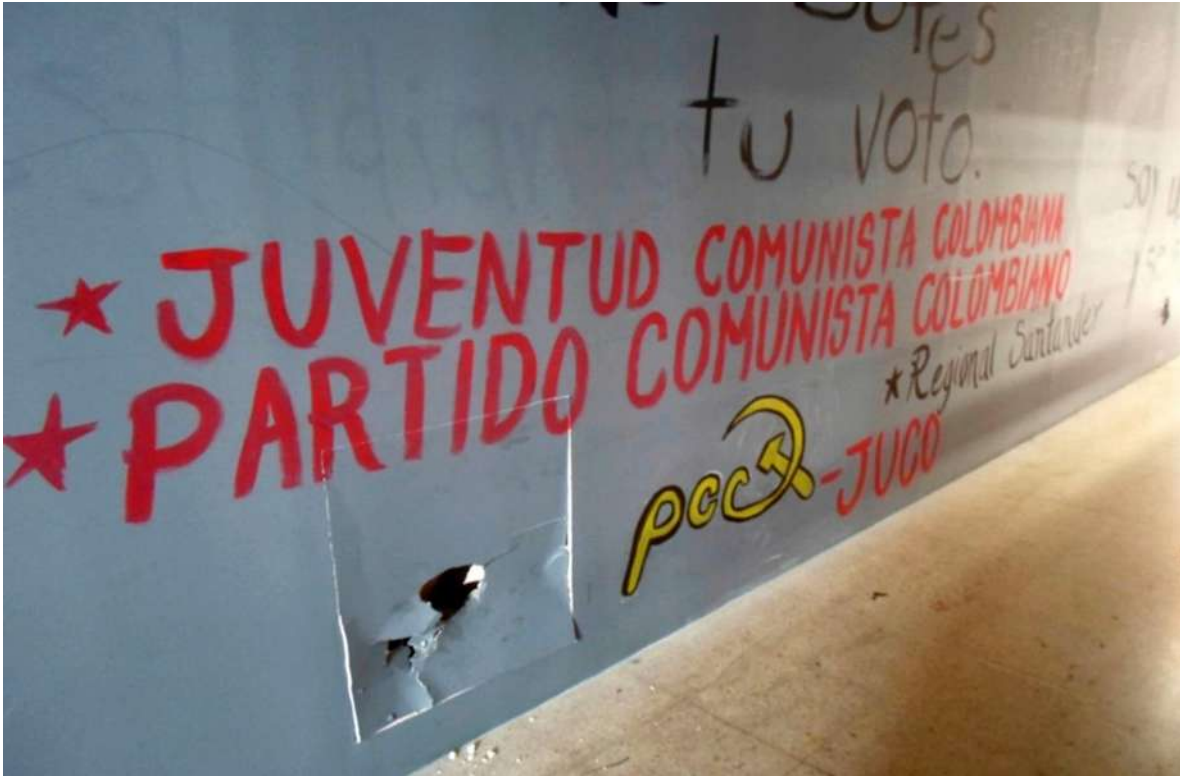 botes
tu voto.
★ JUVENTUD COMUNISTA COLOMBIANA
★ PARTIDO COMUNISTA COLOMBIANO
★ Regional Santander
pcc-JUCO
soy